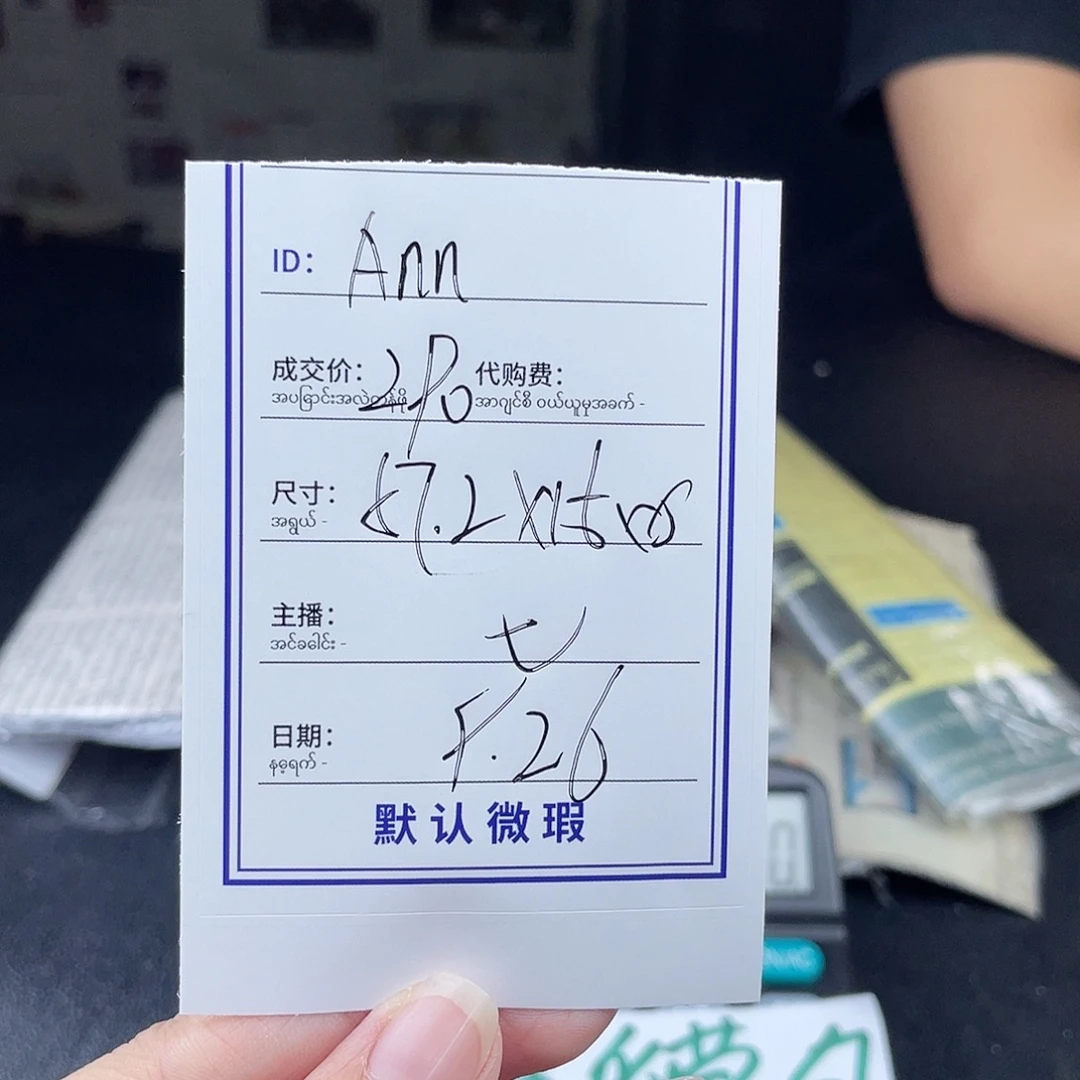 ID: Ann
成交价: 代购费:
အပြောင်းအလဲတန်ဖိုး အာဂျင်စီ ဝယ်ယူမှုအခက် -
尺寸: 57.2
အရွယ် -
主播: 七
အင်ခေါင်း -
日期: 5.26
နေ့ရက် -
默认微瑕